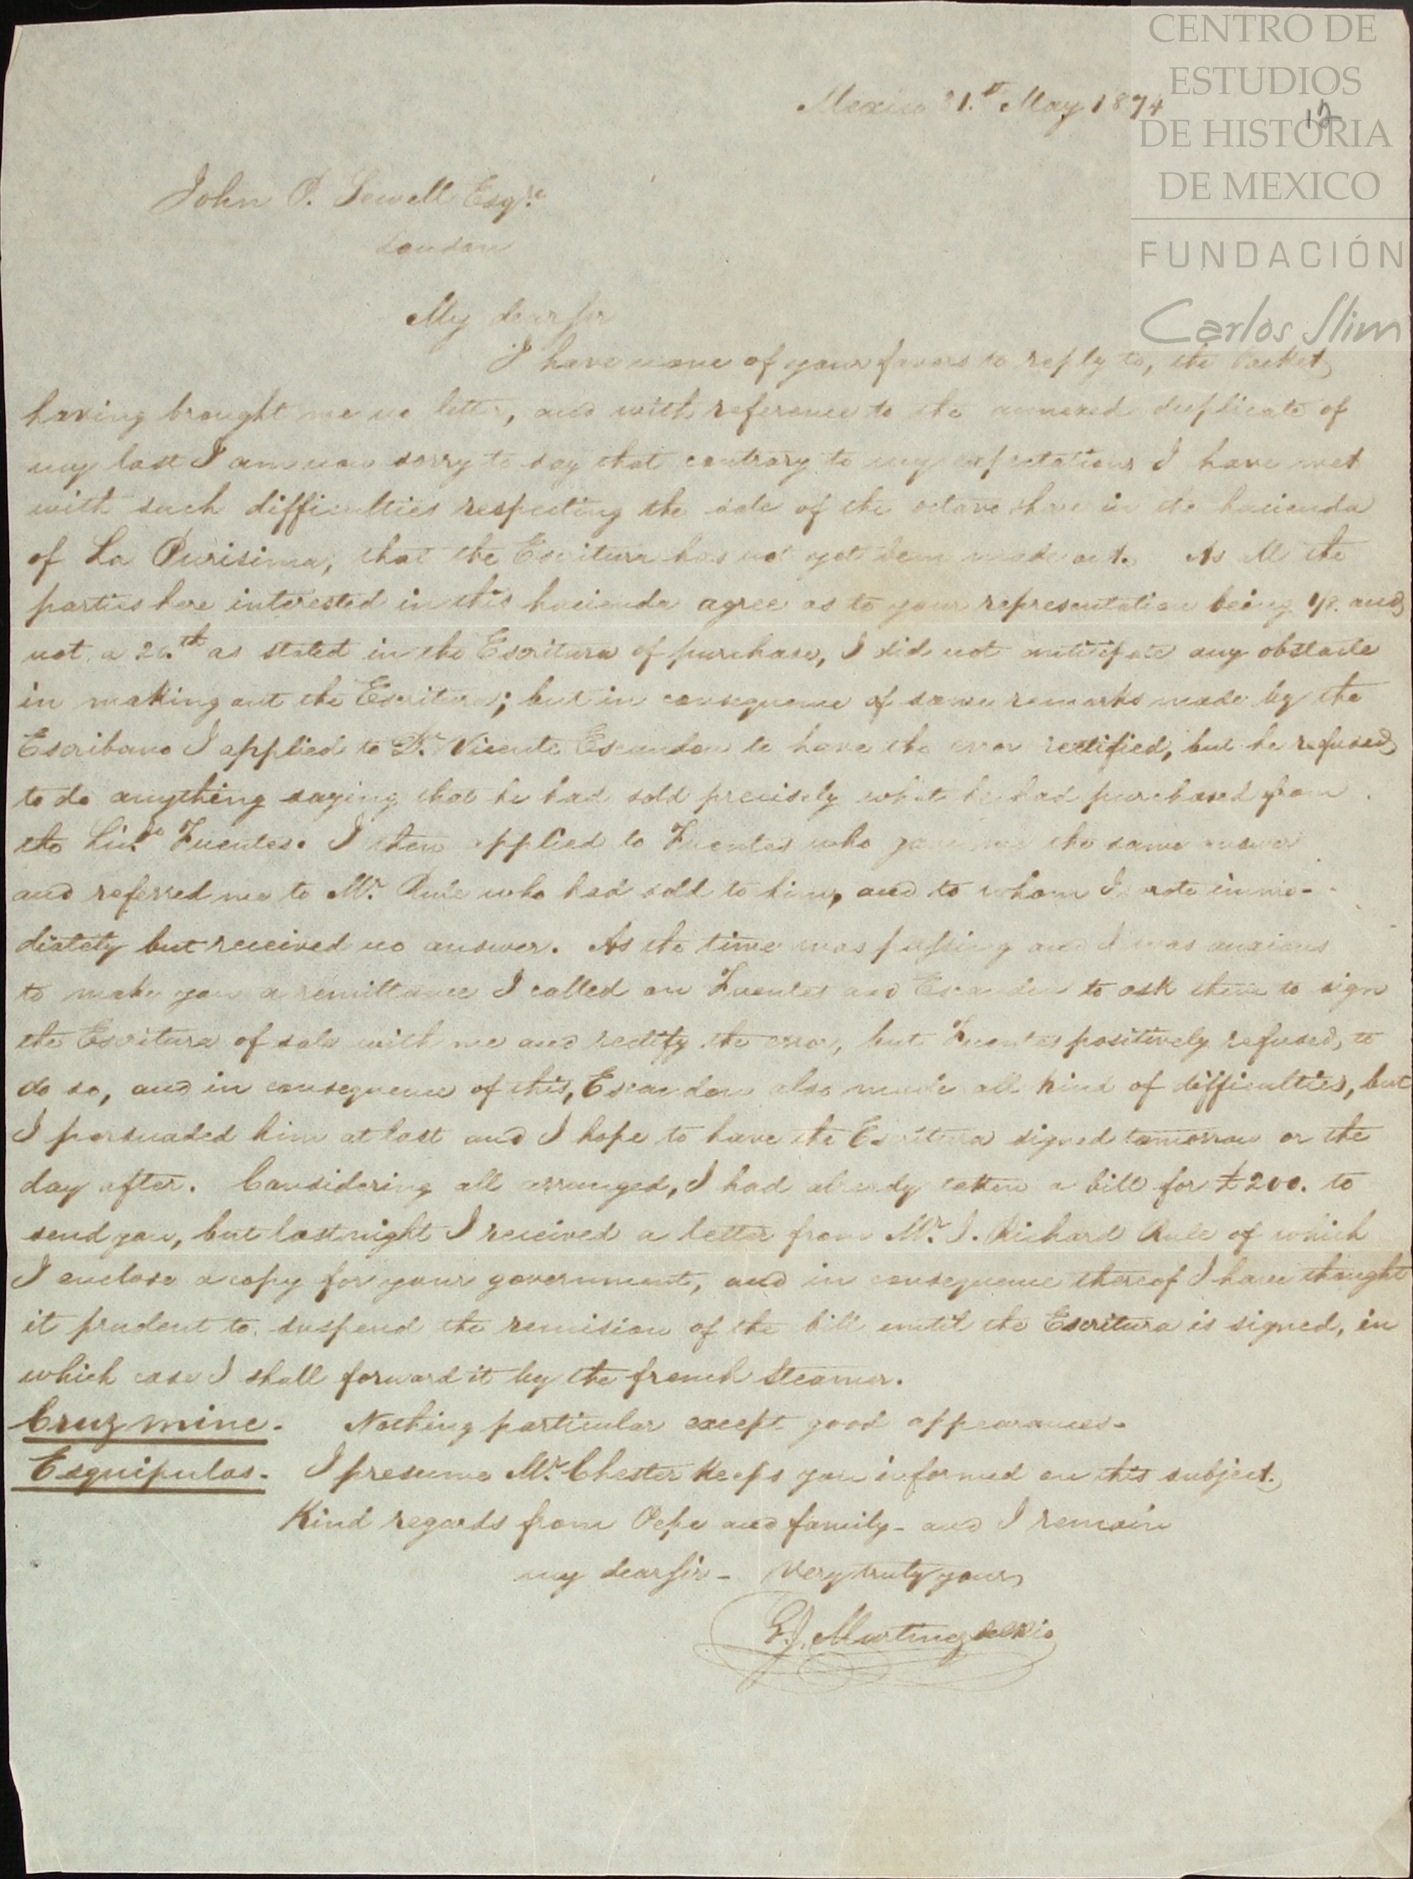 CENTRO DE
ESTUDIOS
DE HISTORIA
DE MEXICO
FUNDACIÓN
Carlos Slim
12
Mexico 21.st May 1874
John P. Sewell Esqre.
London
My dear Sir
I have none of your favors to reply to, the Packet
having brought me no letter, and with reference to the annexed duplicate of
my last I am now sorry to say that contrary to my expectations I have met
with such difficulties respecting the sale of the octave share in the hacienda
of La Purisima, that the Escritura has not yet been made out. As all the
parties here interested in this hacienda agree as to your representation being 1/8. and
not a 20.th as stated in the Escritura of purchase, I did not anticipate any obstacle
in making out the Escritura; but in consequence of some remarks made by the
Escribano I applied to Dn. Vicente Escandon to have the error rectified, but he refused
to do anything saying that he had sold precisely what he had purchased from
the Licdo. Fuentes. I then applied to Fuentes who gave me the same answer
and referred me to Mr. Rule who had sold to him, and to whom I wrote imme-
diately but received no answer. As the time was passing and I was anxious
to make you a remittance I called on Fuentes and Escandon to ask them to sign
the Escritura of sale with me and rectify the error, but Fuentes positively refused, to
do so, and in consequence of this, Escandon also made all kind of difficulties, but
I persuaded him at last and I hope to have the Escritura signed tomorrow or the
day after. Considering all arranged, I had already taken a bill for £200. to
send you, but last night I received a letter from Mr. J. Richard Rule of which
I enclose a copy for your government, and in consequence thereof I have thought
it prudent to suspend the remision of the bill until the Escritura is signed, in
which case I shall forward it by the french Steamer.
Cruz mine. Nothing particular except good appearances.
Esquipulas. I presume Mr. Chester keeps you informed on this subject.
Kind regards from Pepe and family - and I remain
my dear Sir - Very truly yours
Martinez del Rio